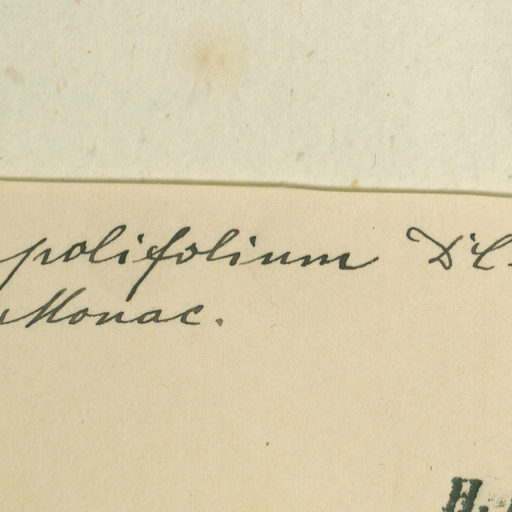 polifolium DC.
Monac.
H.